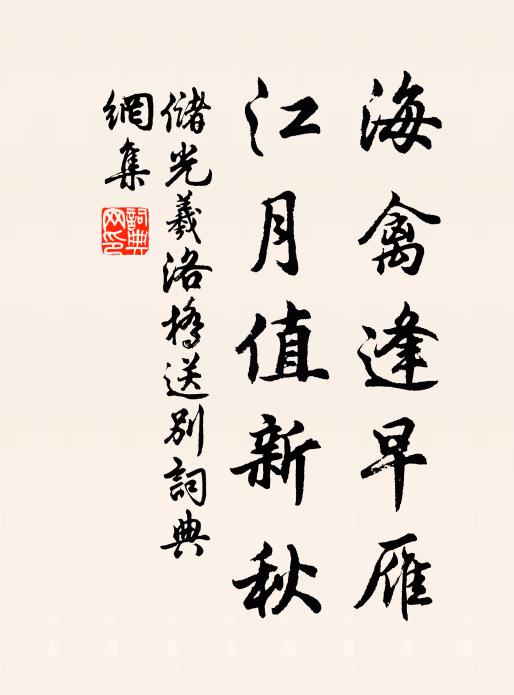 海禽逢早雁
江月值新秋
儲光羲洛橋送別詞典
網集
詞典
网印